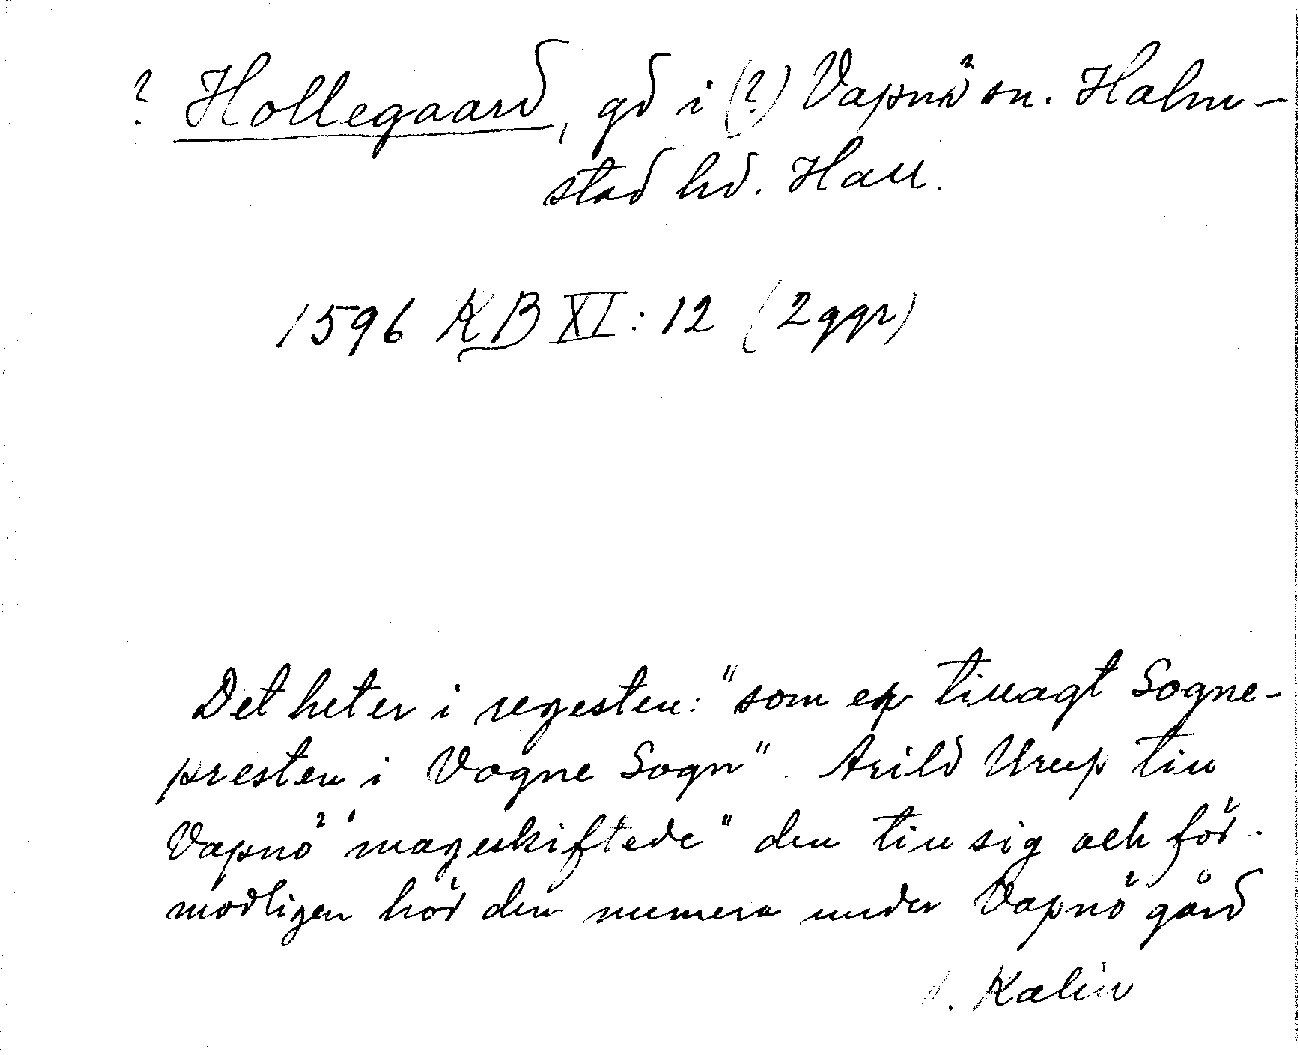 ? Hollegaard, gd i (?) Vapnö sn. Halm-
stad hd. Hall.
1596 KB XI: 12 (2 ggr)
Det heter i regesten: "som er tillagt Sogne-
presten i Vogne Sogn". Arild Urup till
Vapnö "mageskiftede" den till sig och för-
modligen hör den numera under Vapnö gård
Kalén